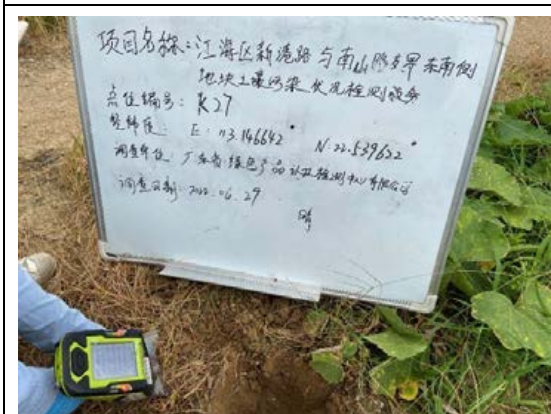 项目名称:江海区新港路与南山路交界东南侧
地块土壤污染状况检测服务
点位编号: K27
经纬度: E: 113.146642° N: 22.539622°
调查单位: 广东省绿色产品认证检测中心有限公司
调查日期: 2022.06.29
晴